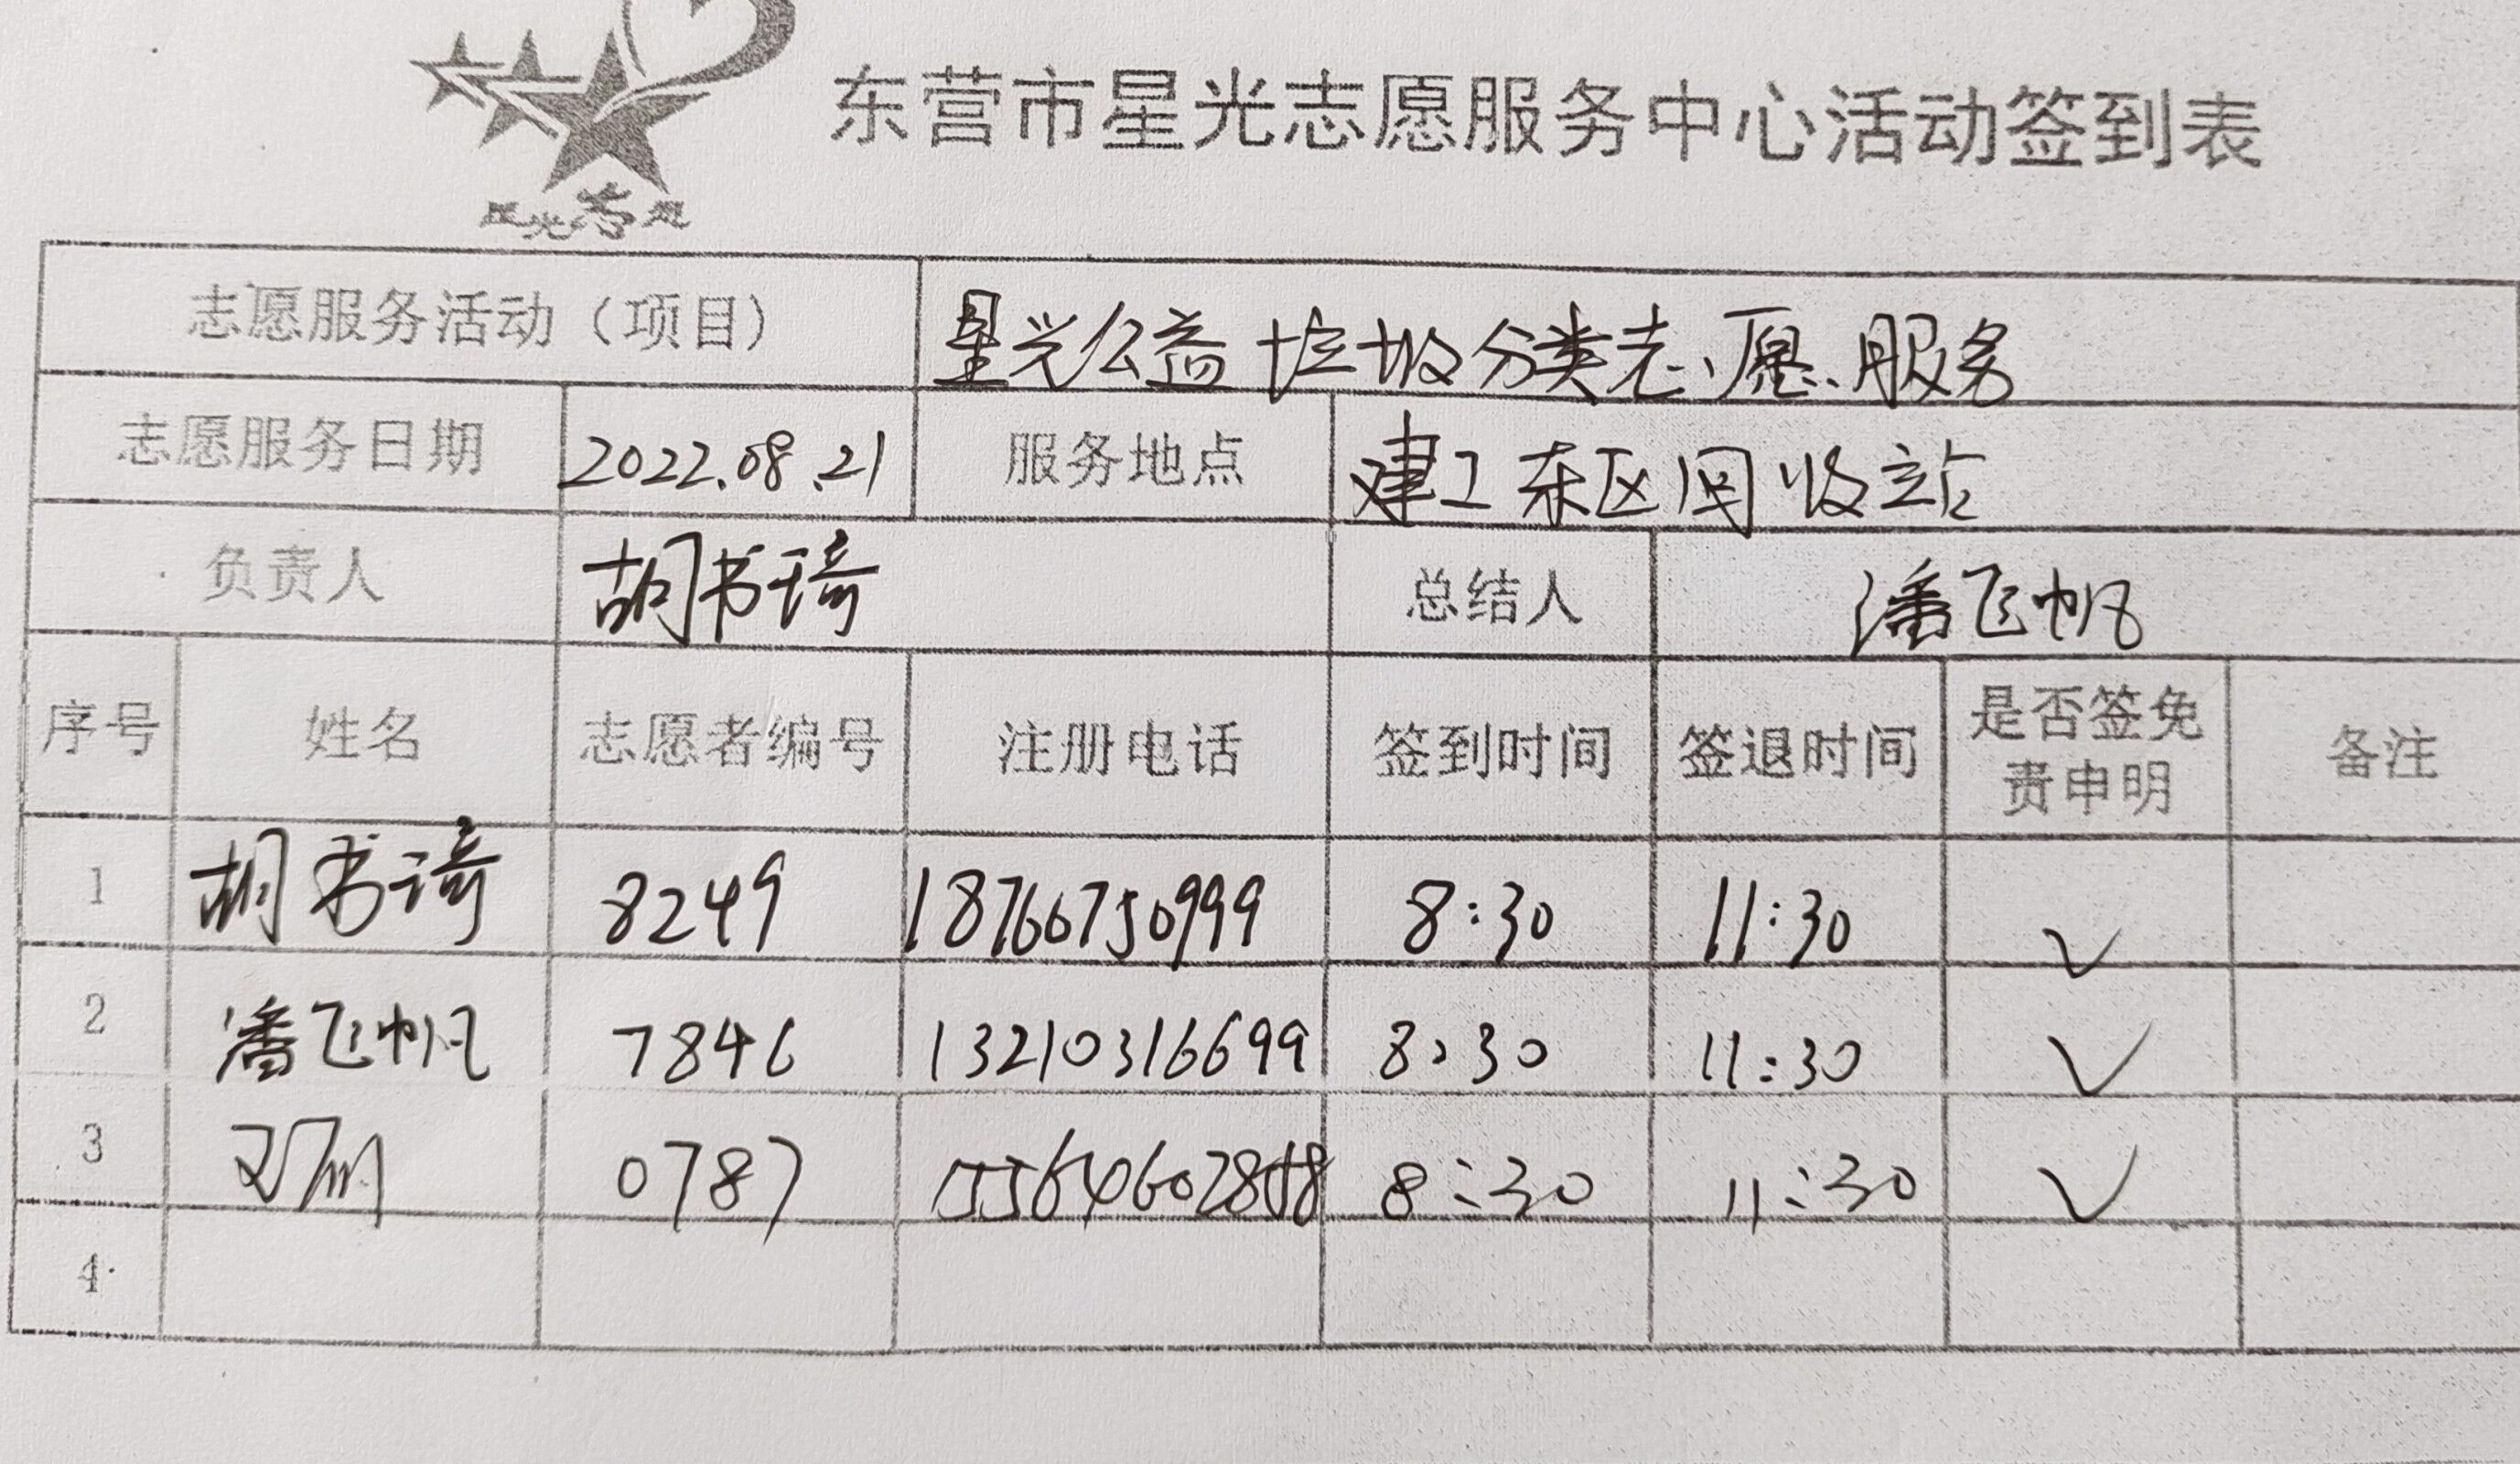 东营市星光志愿服务中心活动签到表
星光志愿
志愿服务活动（项目） 星光公益垃圾分类志愿服务
志愿服务日期 2022.08.21 服务地点 建工东区回收站
负责人 胡书琦 总结人 潘飞帆
序号 姓名 志愿者编号 注册电话 签到时间 签退时间 是否签免责申明 备注
1 胡书琦 8249 18766750999 8:30 11:30 ✓
2 潘飞帆 7846 13210316699 8:30 11:30 ✓
3 0787 8:30 11:30 ✓
4